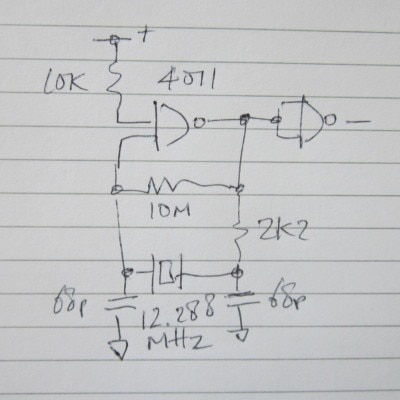 +
10K
4011
10M
2K2
68p
68p
12.288
MHz